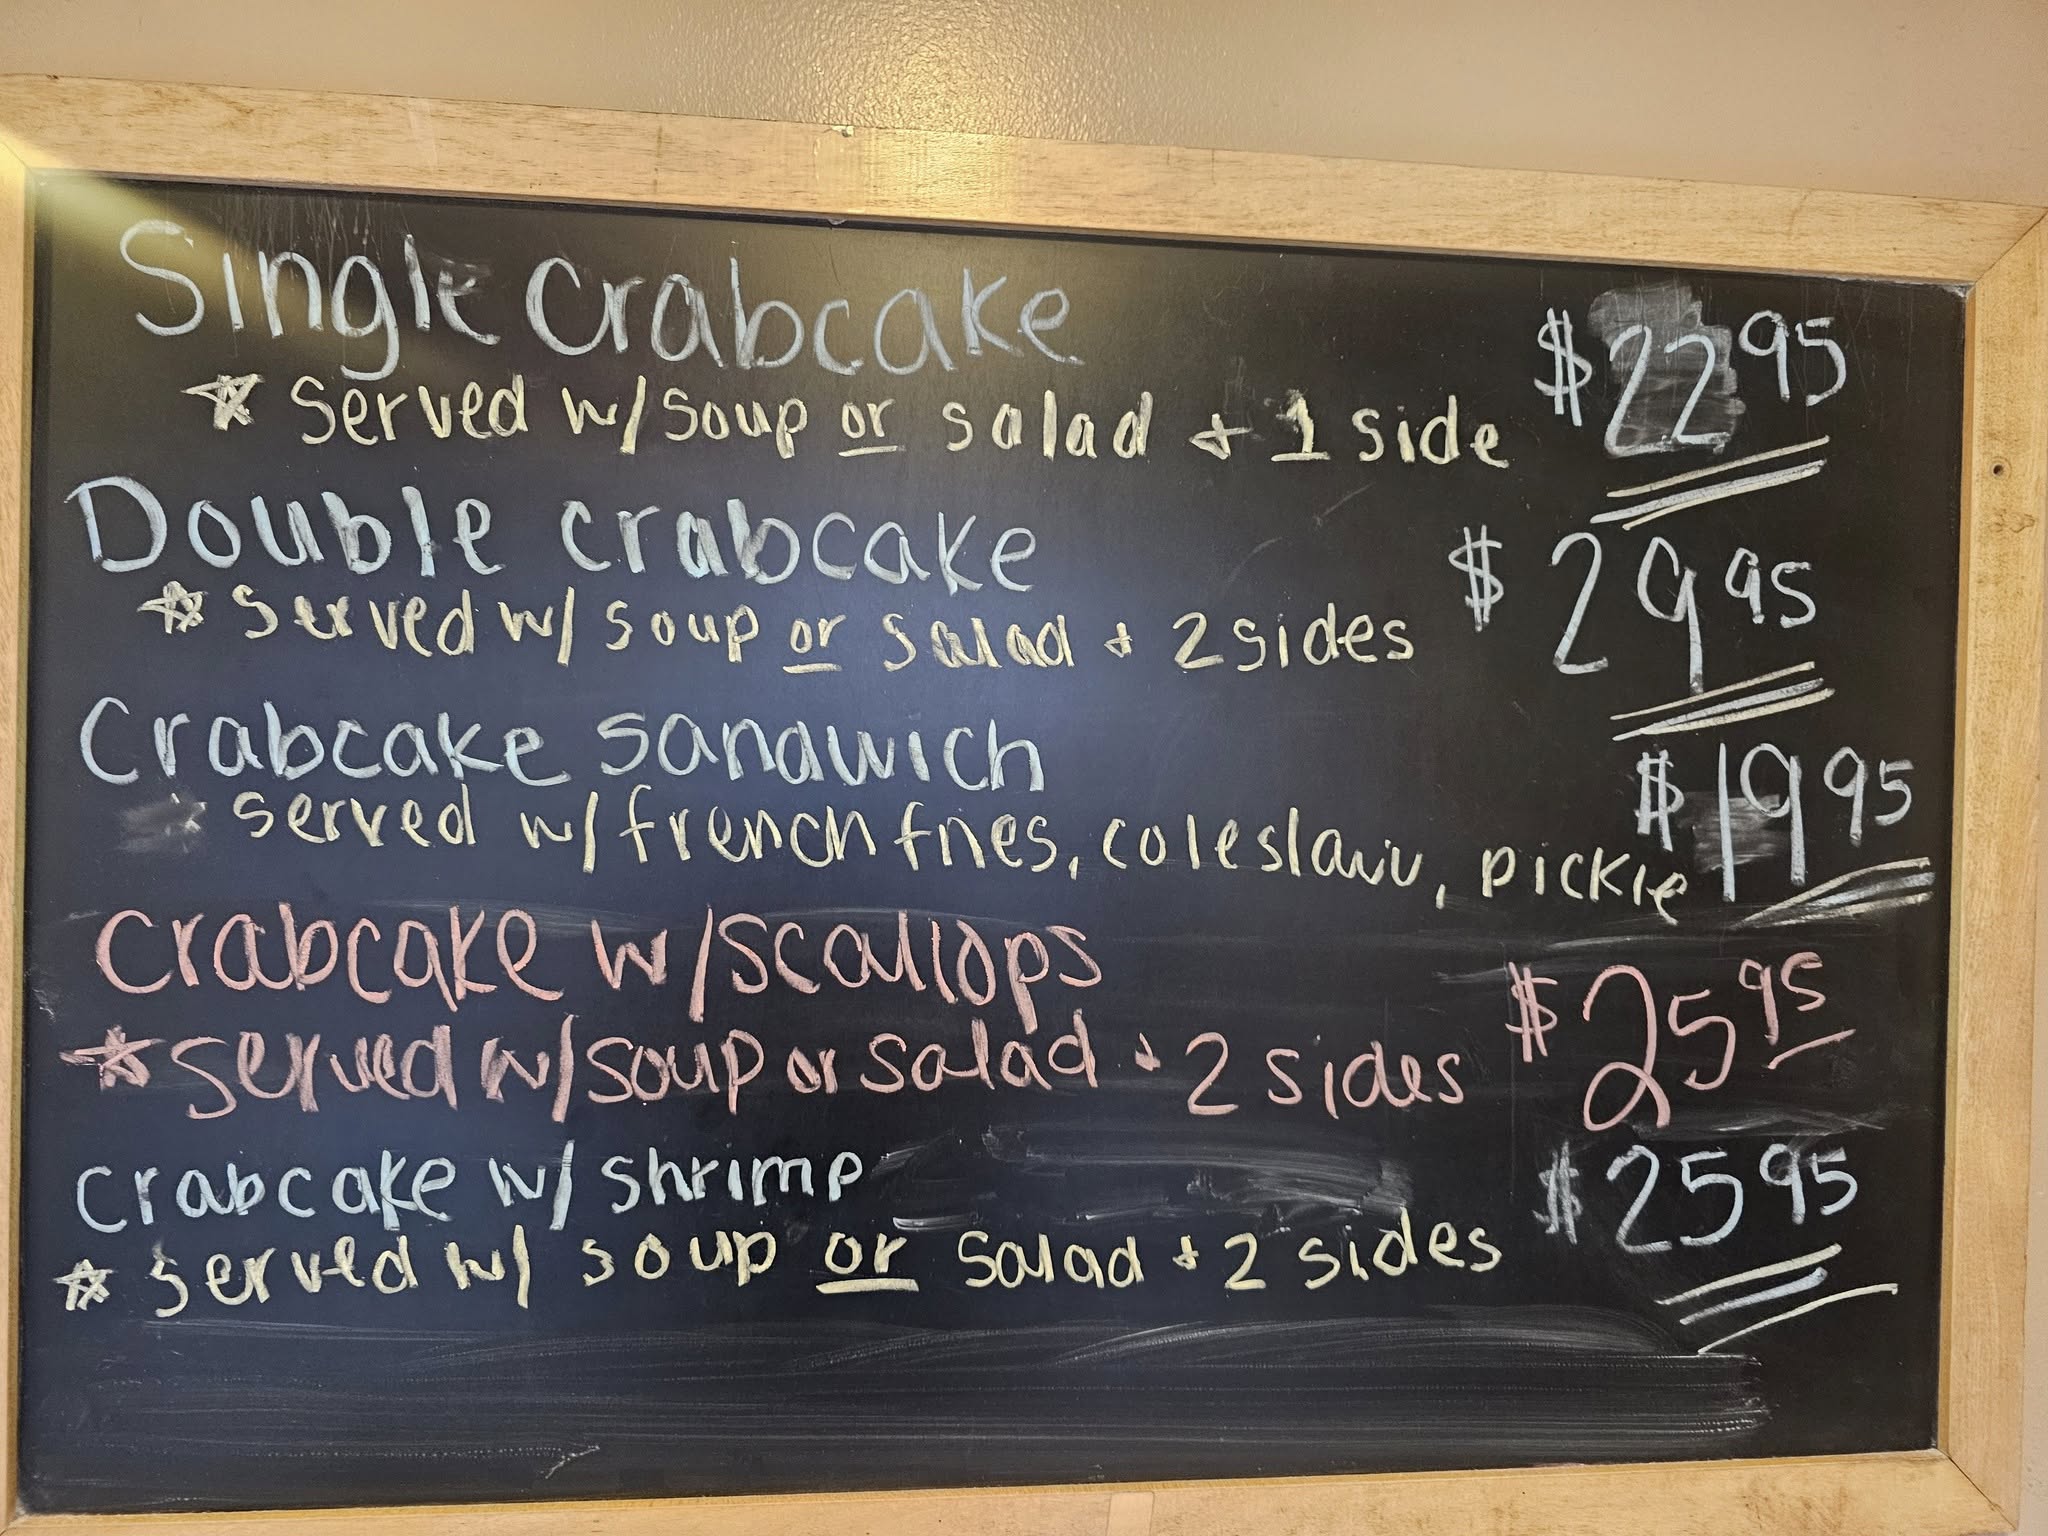 Single Crabcake $22 95
☆ Served w/soup or salad + 1 side
Double Crabcake $29 95
☆ Served w/ soup or salad + 2 sides
Crabcake Sandwich $19 95
served w/ french fries, coleslaw, pickle
Crabcake w/scallops $25 95
☆ served w/soup or salad + 2 sides
Crabcake w/ shrimp $25 95
☆ served w/ soup or salad + 2 sides